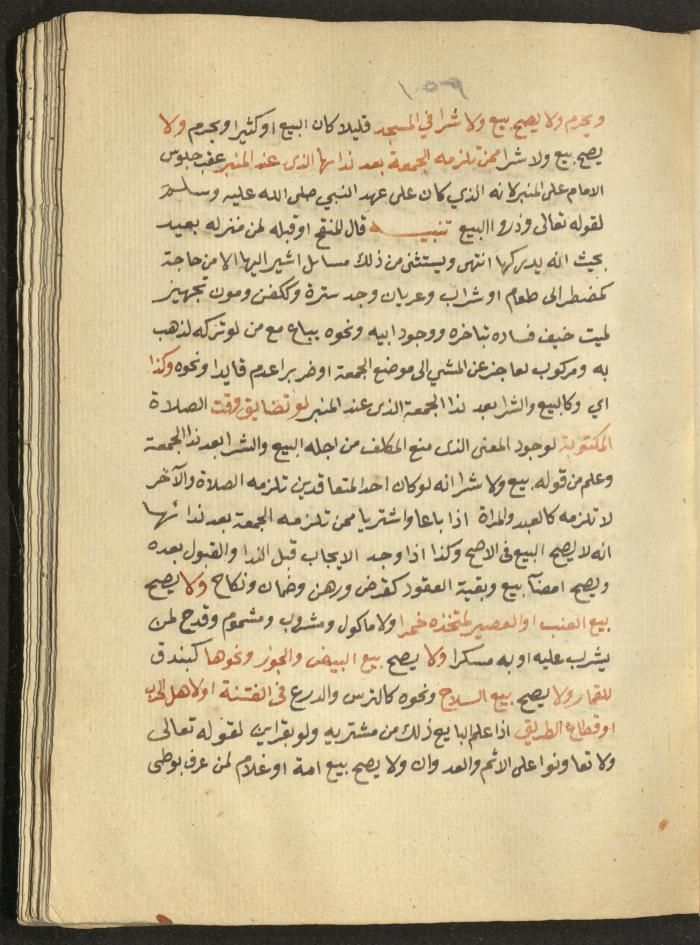 ١٥٣
ويحرم ولا يصح بيع ولا شرا في المسجد قليلا كان البيع او كثيرا ويحرم ولا
يصح بيع ولا شرا ممن تلزمه الجمعة بعد ندائها الذى عند المنبر عقب جلوس
الامام على المنبر لانه الذي كان على عهد النبي صلى الله عليه وسلم
لقوله تعالى وذروا البيع تنبيه قال المنقح او قبله لمن منزله بعيد
بحيث انه يدركها انتهى ويستثنى من ذلك مسايل اشير اليها الا من حاجة
كمضطر الى طعام او شراب وعريان وجد سترة وككفن ومون تجهيز
لميت خيف فساده بتاخره ووجود ابيه ونحوه يباع مع من لو تركه لذهب
به ومركوب لعاجز عن المشي الى موضع الجمعة او ضرير اعدم قايدا ونحوه وكذا
اي وكالبيع والشرا بعد ندا الجمعة الذى عند المنبر لو تضايق وقت الصلاة
المكتوبة لوجود المعنى الذى منع المكلف من اجله البيع والشرا بعد ندا الجمعة
وعلم من قوله بيع ولا شرا انه لو كان احد المتعاقدين تلزمه الصلاة والآخر
لا تلزمه كالعبد والمراة اذا باعا واشتريا ممن تلزمه الجمعة بعد ندائها
انه لا يصح البيع فى الاصح وكذا اذا وجد الايجاب قبل الندا والقبول بعده
ويصح امضآ بيع وبقية العقود كقرض ورهن وضمان ونكاح ولا يصح
بيع العنب او العصير لمتخذه خمرا ولا ماكول ومشروب ومشموم وقدح لمن
يشرب عليه او به مسكرا ولا يصح بيع البيض والجوز ونحوها كبندق
للقمار ولا يصح بيع السلاح ونحوه كالترس والدرع فى الفتنة او لاهل الحرب
او قطاع الطريق اذا علم البايع ذلك من مشتريه ولو بقراين لقوله تعالى
ولا تعاونوا على الاثم والعدوان ولا يصح بيع امة او غلام لمن عرف بوطى